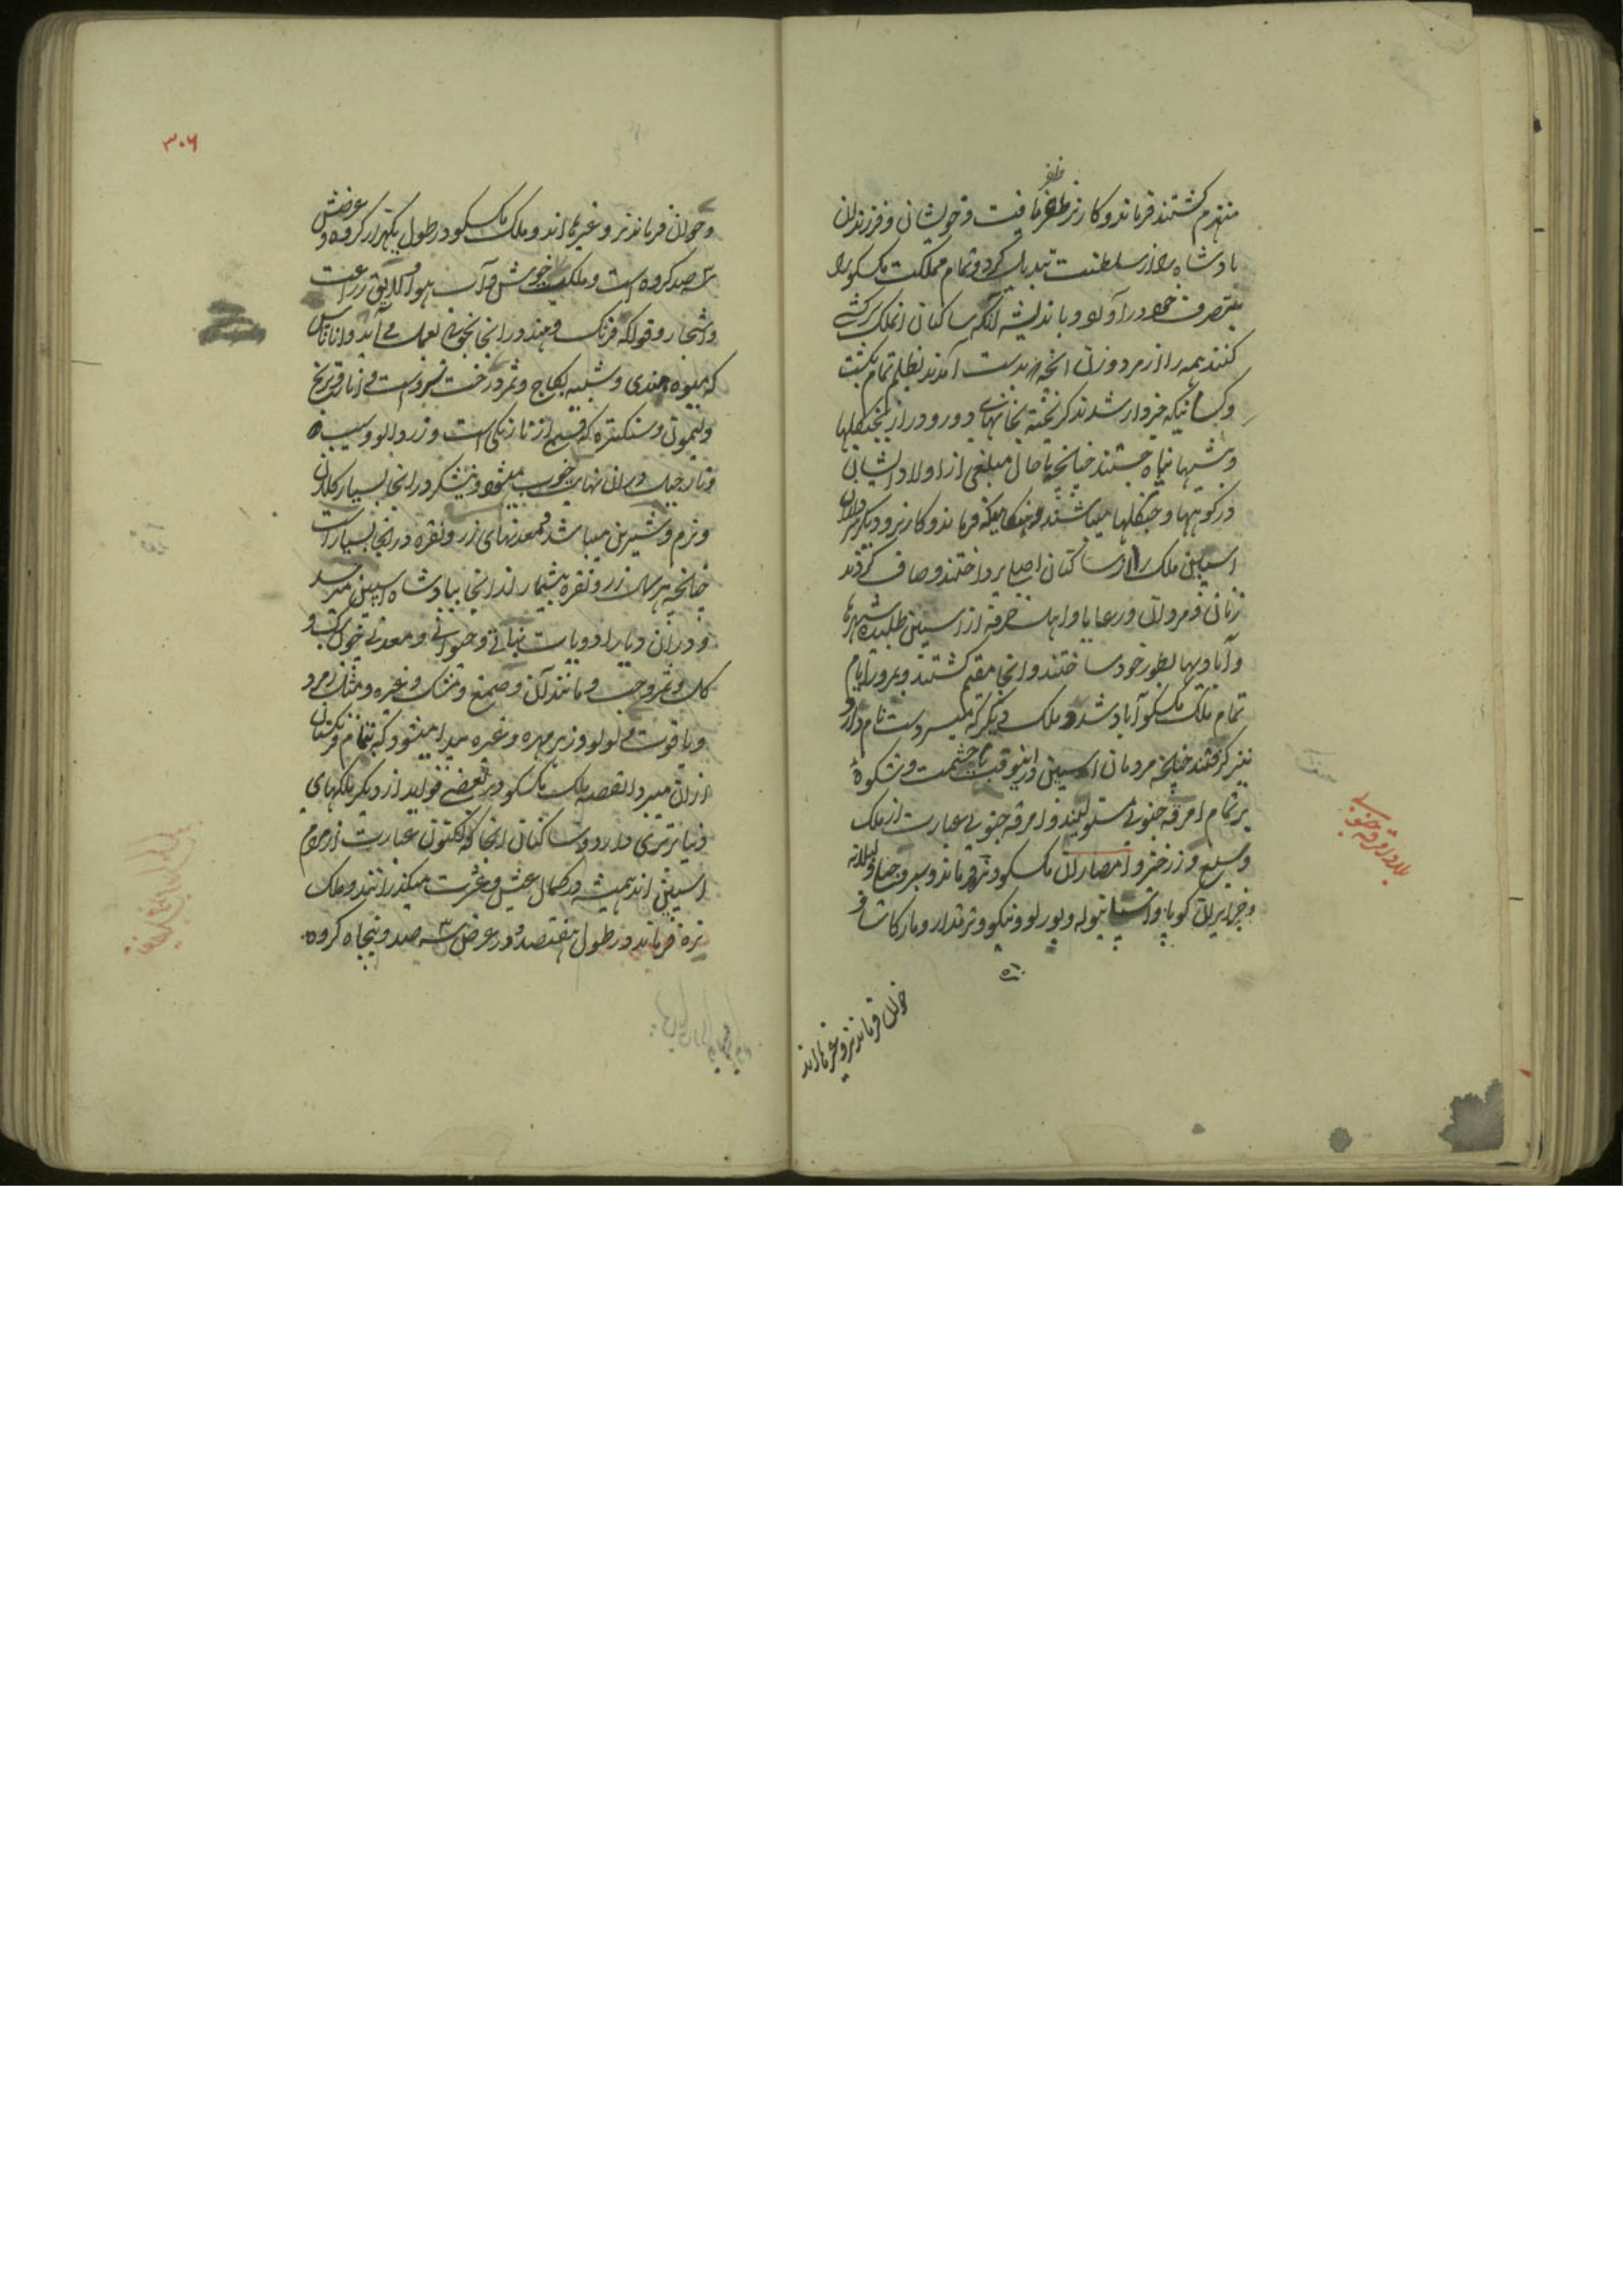 منهزم گشتند فرماندو کارتز ظفر یافت و خویشان و فرزندان
بادشاه را از سلطنت تبدیل کرد و تمام مملکت مکسکو را
بتصرف خود در آورد و باندیشه آنکه ساکنان آنملک سرکشی
کنند همه را از مرد و زن آنچه بدست آمدند بظلم تمام بکشت
و کسانیکه خبردار شدند گریخته بخانهای دور و دراز بجنگلها
و بیشها پناه جستند چنانچه تا حال مبلغی از اولاد ایشان
در کوهها و جنگلها میباشند و هنگامیکه فرماندو کارتز و دیگر سرداران
اسپین ملک را از ساکنان اصلی پرداختند و صاف کردند
زنان و مردان و رعایا و اهل حرفه از اسپین طلبیده شهرها
و آبادیها بطور خود ساختند و آنجا مقیم گشتند و بمرور ایام
تمام ملک مکسکو آباد شد و ملک دیگر که نام دارد
نیز گرفتند چنانچه مردمان اسپین در اینوقت با حشمت و شکوه
بر تمام امرقه جنوبی مستولیند و امرقه جنوبی عبارت از ملک
وسیع و زرخیز و امصار آن مکسکو و تره فرماند و
و جزایر آن کوبا و اسپانیوله و پورلوونیکو و ترندار و مارکاشا و
خوان فرماندنز و غیرها اند
بلاد امرقه جنوبی
۳۰۶
و خوان فرماندنز و غیرها اند و ملک مکسکو در طول یکهزار کروه و عرضش
سه صد کروه است و ملک خوش و آب هوا و لایق زراعت
و اشجار و فواکه فرنگ و هند در آنجا بخوبی بعمل می آید و اناناس
که میوه هندی و شبیه بکاج و ثمر درخت سرو است و انار و ترنج
و لیمون و سنکتره که قسمی از نارنگی است و زردالو و سیب
و نارجیل در آن نهایت خوب میشود و نیشکر در آنجا بسیار کلان
و نرم و شیرین میباشد و معدنهای زر و نقره در آنجا بسیار است
چنانچه هر سال زر و نقره بیشمار از آنجا ببادشاه اسپین میرسد
و در آن دیار ادویات نباتی و حیوانی و معدنی چون
گل و ثمر و حب و مانند آن و صمغ و مشک و غیره و مثل زمرد
و یاقوت و لولو و زهرمهره و غیره پیدا میشود که بتمام فرنگستان
از آن میبرد القصه ملک مکسکو در بعضی فواید از دیگر ملکهای
دنیا برتری دارد و ساکنان آنجا که اکنون عبارت از مردم
اسپین اند همیشه در کمال عیش و عشرت میگذرانند و ملک
تره فرماند در طول هفتصد و در عرض سه صد و پنجاه کروه